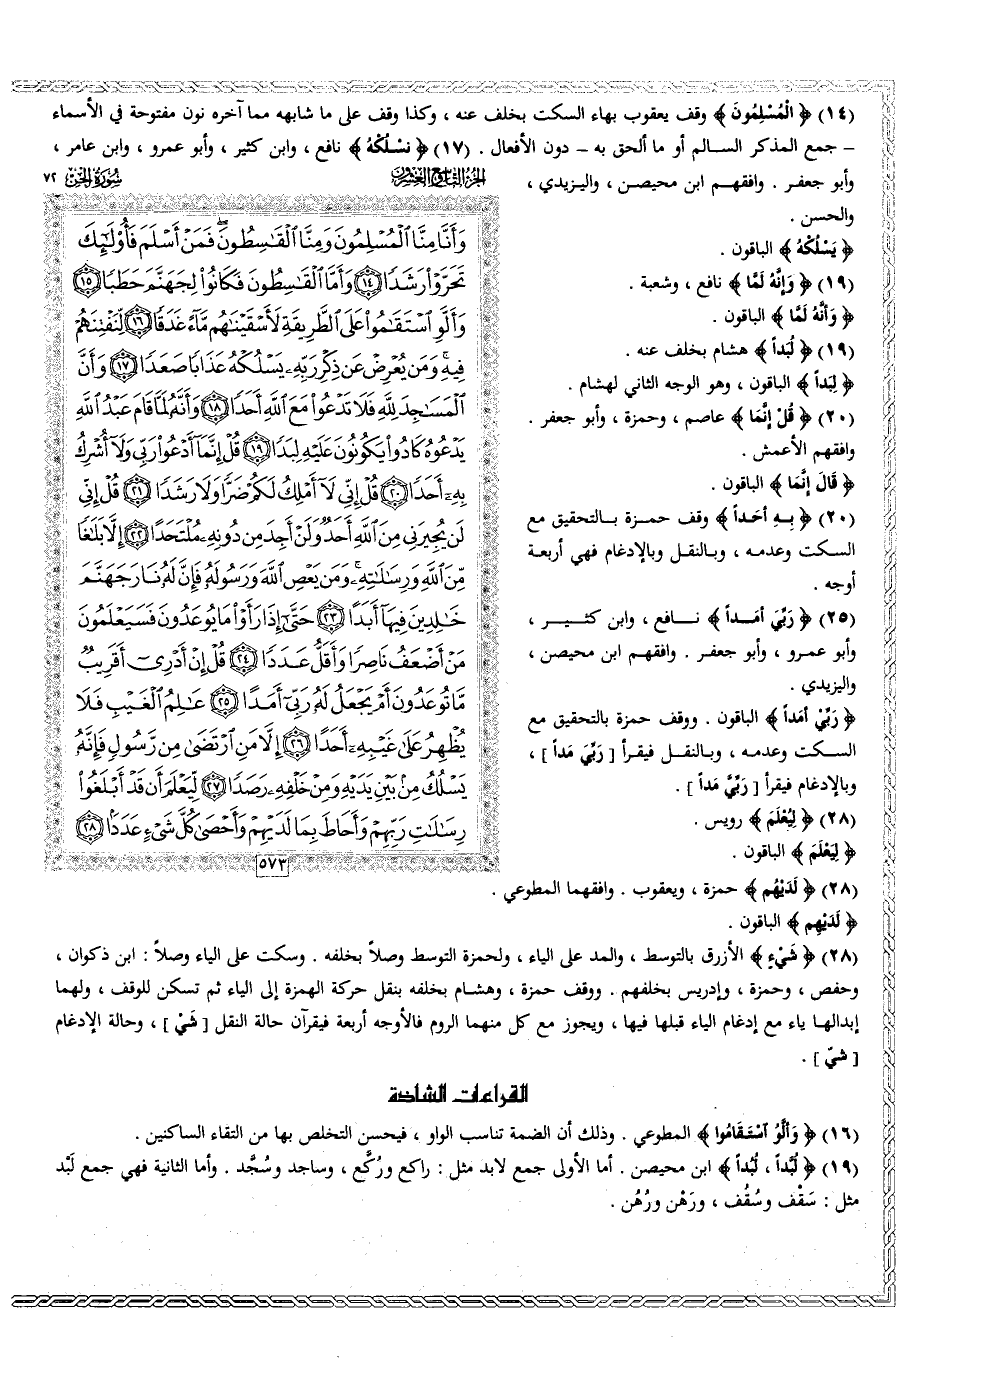 (١٤) ﴿ الْمُسْلِمُونَ ﴾ وقف يعقوب بهاء السكت بخلف عنه ، وكذا وقف على ما شابهه مما آخره نون مفتوحة في الأسماء
– جمع المذكر السـالم أو ما ألحق به – دون الأفعال . (١٧) ﴿ نَسْلُكْهُ ﴾ نافع ، وابن كثير ، وأبو عمرو ، وابن عامر ،
وأبو جعفـر . وافقهـم ابن محيصـن ، واليـزيدي ،
والحسن .
﴿ يَسْلُكْهُ ﴾ الباقون .
(١٩) ﴿ وَإِنَّهُ لَمَّا ﴾ نافع ، وشعبة .
﴿ وَأَنَّهُ لَمَّا ﴾ الباقون .
(١٩) ﴿ لُبَداً ﴾ هشام بخلف عنه .
﴿ لِبَداً ﴾ الباقون ، وهو الوجه الثاني لهشام .
(٢٠) ﴿ قُلْ إِنَّمَا ﴾ عاصم ، وحمزة ، وأبو جعفر .
وافقهم الأعمش .
﴿ قَالَ إِنَّمَا ﴾ الباقون .
(٢٠) ﴿ بِـهِ أحَداً ﴾ وقف حمـزة بـالتحقيق مع
السكت وعدمـه ، وبـالنقل وبالإدغام فهي أربعـة
أوجه .
(٢٥) ﴿ رَبِّيَ أمَـداً ﴾ نـــافع ، وابن كثـــير ،
وأبو عمـرو ، وأبو جعفـر . وافقهـم ابن محيصـن ،
واليزيدي .
﴿ رَبِّيْ أمَداً ﴾ الباقون . ووقف حمزة بالتحقيق مع
السكت وعدمـه ، وبـالنقـل فيقـرأ [ رَبِّيَ مَداً ] ،
وبالإدغام فيقرأ [ رَبِّيَّ مَداً ] .
(٢٨) ﴿ لِيُعْلَمَ ﴾ رويس .
﴿ لِيَعْلَمَ ﴾ الباقون .
سُورَةُ الجِنِّ ٧٢
الجُزءُ التَّاسِعُ وَالعِشْرُونَ
وَأَنَّا مِنَّا ٱلْمُسْلِمُونَ وَمِنَّا ٱلْقَٰسِطُونَۖ فَمَنْ أَسْلَمَ فَأُو۟لَٰٓئِكَ
تَحَرَّوْا۟ رَشَدًا ۝١٤ وَأَمَّا ٱلْقَٰسِطُونَ فَكَانُوا۟ لِجَهَنَّمَ حَطَبًا ۝١٥
وَأَلَّوِ ٱسْتَقَٰمُوا۟ عَلَى ٱلطَّرِيقَةِ لَأَسْقَيْنَٰهُم مَّآءً غَدَقًا ۝١٦ لِّنَفْتِنَهُمْ
فِيهِۚ وَمَن يُعْرِضْ عَن ذِكْرِ رَبِّهِۦ يَسْلُكْهُ عَذَابًا صَعَدًا ۝١٧ وَأَنَّ
ٱلْمَسَٰجِدَ لِلَّهِ فَلَا تَدْعُوا۟ مَعَ ٱللَّهِ أَحَدًا ۝١٨ وَأَنَّهُۥ لَمَّا قَامَ عَبْدُ ٱللَّهِ
يَدْعُوهُ كَادُوا۟ يَكُونُونَ عَلَيْهِ لِبَدًا ۝١٩ قُلْ إِنَّمَآ أَدْعُوا۟ رَبِّى وَلَآ أُشْرِكُ
بِهِۦٓ أَحَدًا ۝٢٠ قُلْ إِنِّى لَآ أَمْلِكُ لَكُمْ ضَرًّا وَلَا رَشَدًا ۝٢١ قُلْ إِنِّى
لَن يُجِيرَنِى مِنَ ٱللَّهِ أَحَدٌ وَلَنْ أَجِدَ مِن دُونِهِۦ مُلْتَحَدًا ۝٢٢ إِلَّا بَلَٰغًا
مِّنَ ٱللَّهِ وَرِسَٰلَٰتِهِۦۚ وَمَن يَعْصِ ٱللَّهَ وَرَسُولَهُۥ فَإِنَّ لَهُۥ نَارَ جَهَنَّمَ
خَٰلِدِينَ فِيهَآ أَبَدًا ۝٢٣ حَتَّىٰٓ إِذَا رَأَوْا۟ مَا يُوعَدُونَ فَسَيَعْلَمُونَ
مَنْ أَضْعَفُ نَاصِرًا وَأَقَلُّ عَدَدًا ۝٢٤ قُلْ إِنْ أَدْرِىٓ أَقَرِيبٌ
مَّا تُوعَدُونَ أَمْ يَجْعَلُ لَهُۥ رَبِّىٓ أَمَدًا ۝٢٥ عَٰلِمُ ٱلْغَيْبِ فَلَا
يُظْهِرُ عَلَىٰ غَيْبِهِۦٓ أَحَدًا ۝٢٦ إِلَّا مَنِ ٱرْتَضَىٰ مِن رَّسُولٍ فَإِنَّهُۥ
يَسْلُكُ مِنۢ بَيْنِ يَدَيْهِ وَمِنْ خَلْفِهِۦ رَصَدًا ۝٢٧ لِّيَعْلَمَ أَن قَدْ أَبْلَغُوا۟
رِسَٰلَٰتِ رَبِّهِمْ وَأَحَاطَ بِمَا لَدَيْهِمْ وَأَحْصَىٰ كُلَّ شَىْءٍ عَدَدًۢا ۝٢٨
٥٧٣
(٢٨) ﴿ لَدَيْهُم ﴾ حمزة ، ويعقوب . وافقهما المطوعي .
﴿ لَدَيْهِم ﴾ الباقون .
(٢٨) ﴿ شَيْءٍ ﴾ الأزرق بالتوسط ، والمد على الياء ، ولحمزة التوسط وصلاً بخلفه . وسكت على الياء وصلاً : ابن ذكوان ،
وحفص ، وحمزة ، وإدريس بخلفهم . ووقف حمزة ، وهشام بخلفه بنقل حركة الهمزة إلى الياء ثم تسكن للوقف ، ولهما
إبدالهـا ياء مع إدغام الياء قبلها فيها ، ويجوز مع كل منهما الروم فالأوجه أربعة فيقرآن حالة النقل [ شَيْ ] ، وحالة الإدغام
[ شيّ ] .
القراءات الشاذة
(١٦) ﴿ وَألَّوُ اسْتَقَامُوا ﴾ المطوعي . وذلك أن الضمة تناسب الواو ، فيحسن التخلص بها من التقاء الساكنين .
(١٩) ﴿ لُبَّداً ، لُبُداً ﴾ ابن محيصن . أما الأولى جمع لابد مثل : راكع ورُكَّع ، وساجد وسُجَّد . وأما الثانية فهي جمع لَبْد
مثل : سَقْف وسُقُف ، ورَهْن ورُهُن .